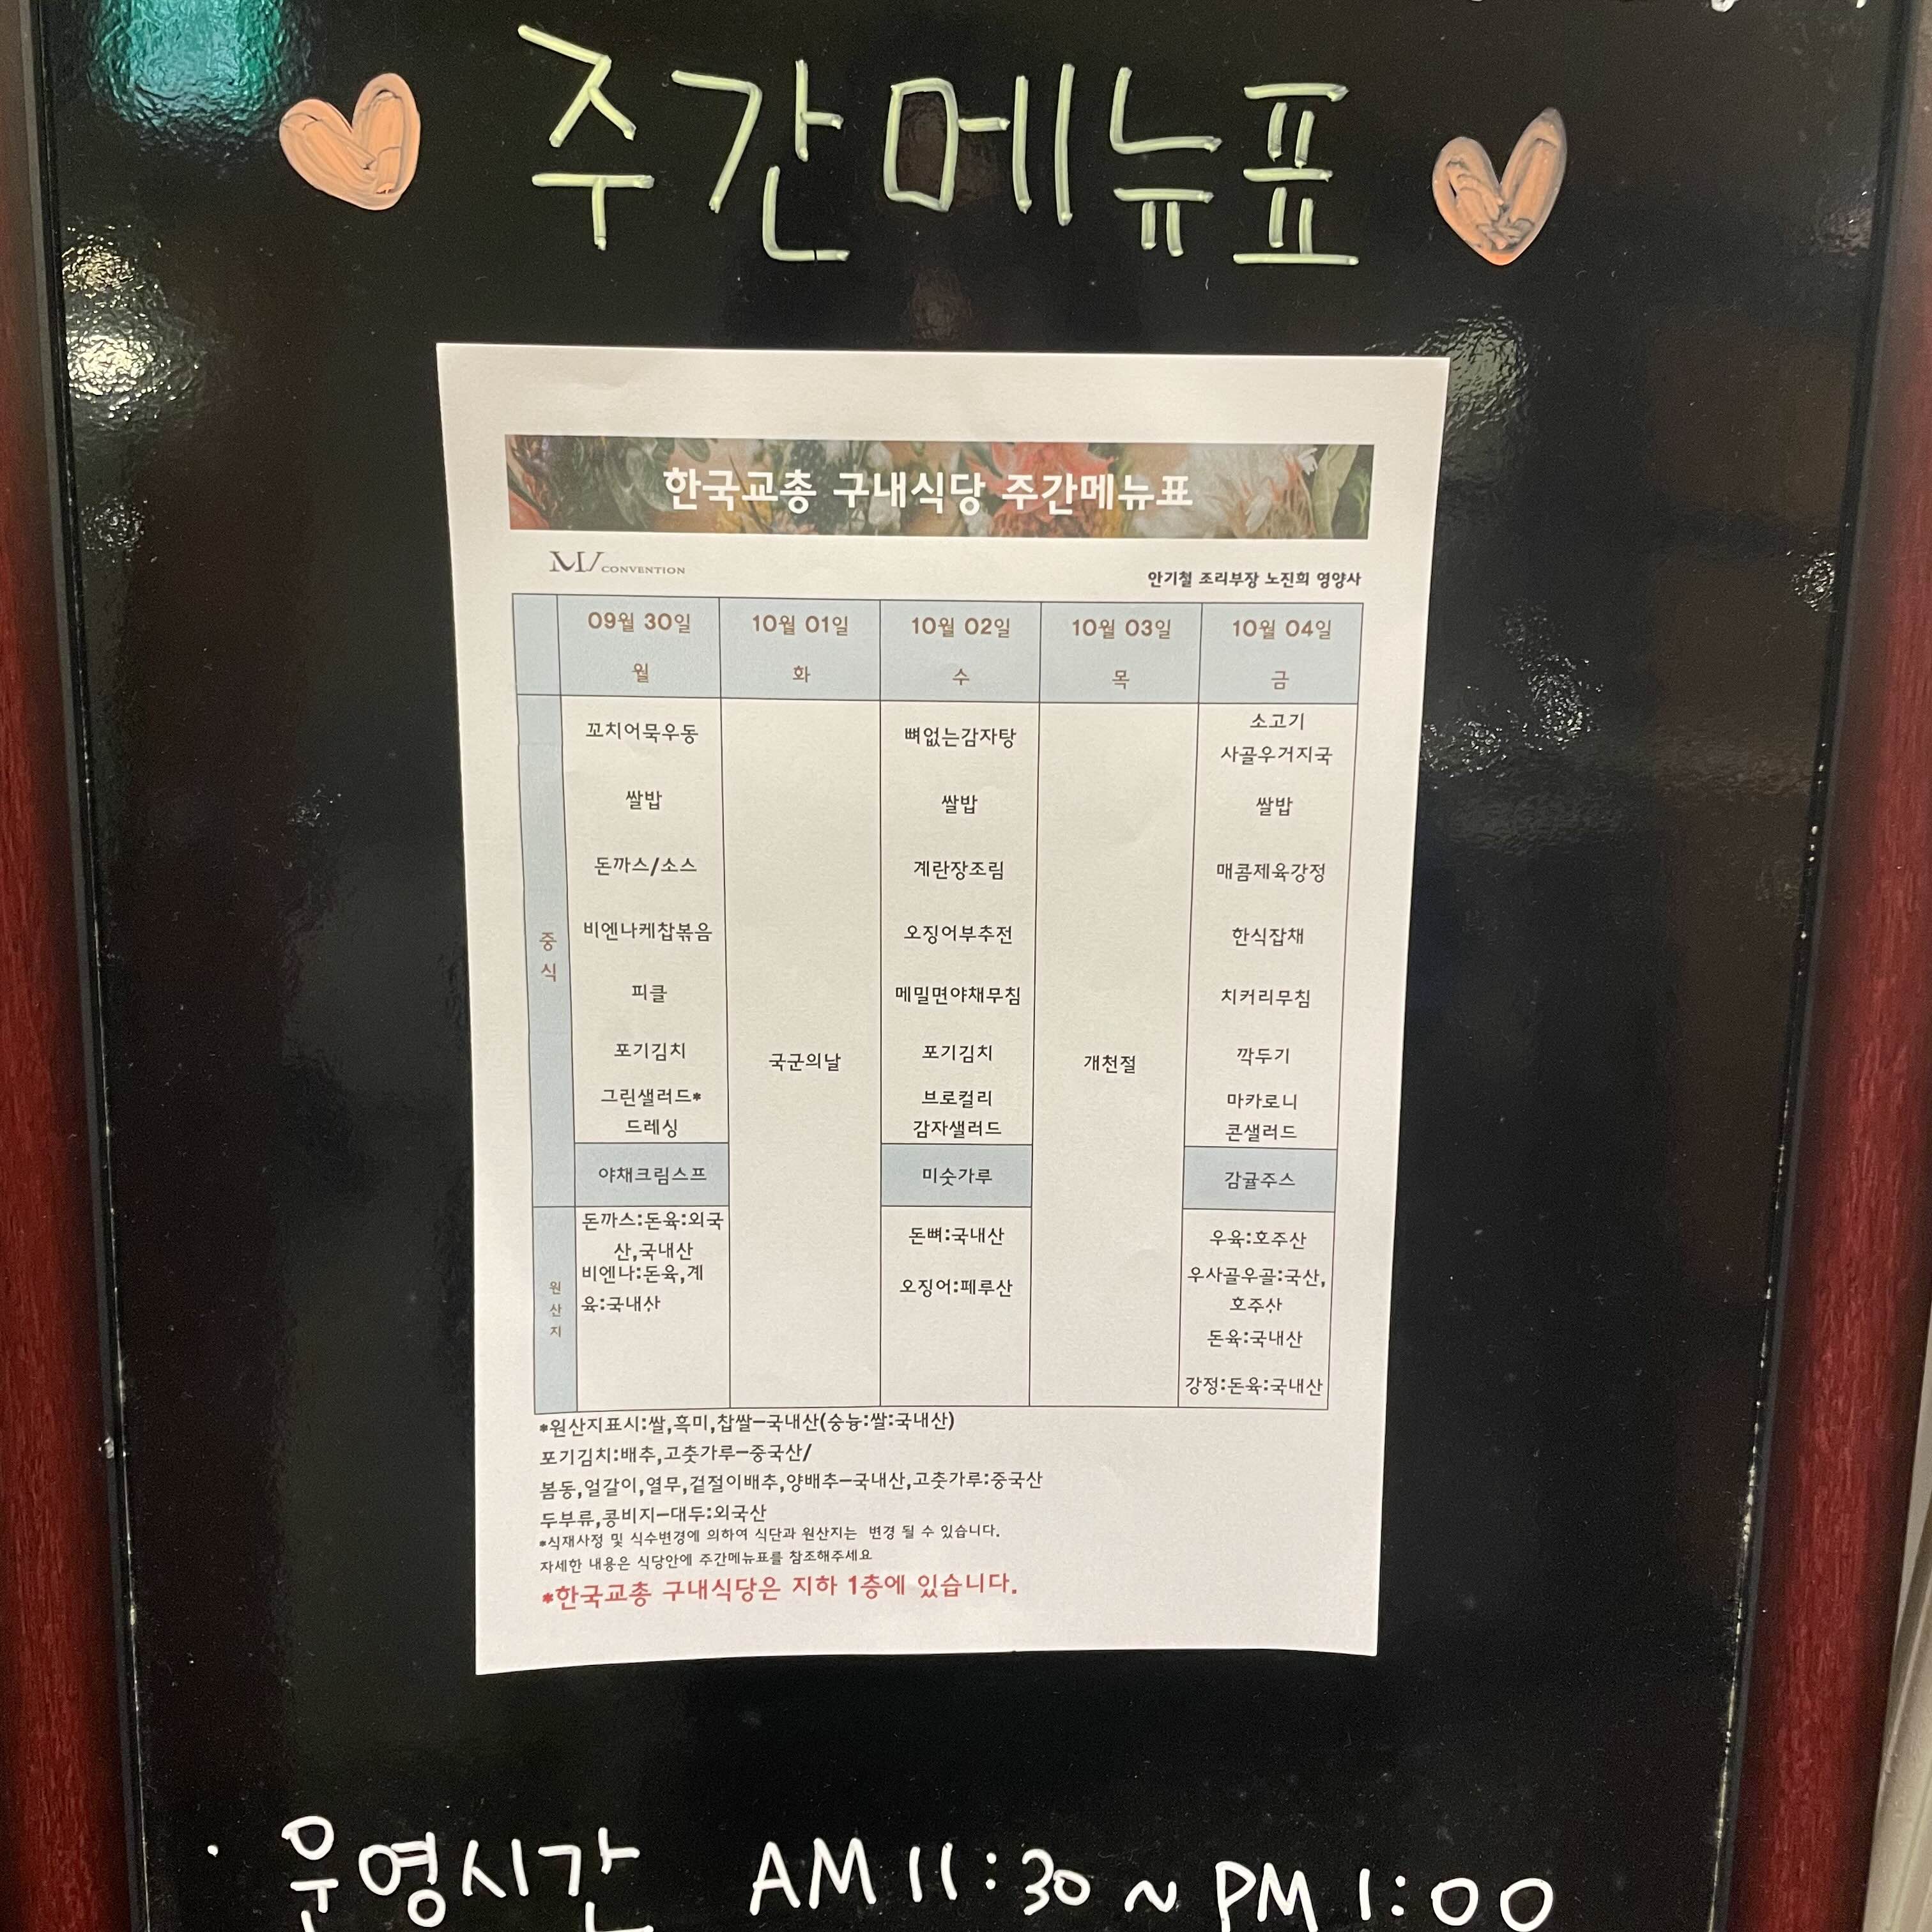 주간메뉴표
한국교총 구내식당 주간메뉴표
M/ CONVENTION
안기철 조리부장 노진희 영양사
09월 30일 10월 01일 10월 02일 10월 03일 10월 04일
월 화 수 목 금
중식
꼬치어묵우동
쌀밥
돈까스/소스
비엔나케찹볶음
피클
포기김치
그린샐러드*
드레싱
야채크림스프
국군의날
뼈없는감자탕
쌀밥
계란장조림
오징어부추전
메밀면야채무침
포기김치
브로컬리
감자샐러드
미숫가루
개천절
소고기
사골우거지국
쌀밥
매콤제육강정
한식잡채
치커리무침
깍두기
마카로니
콘샐러드
감귤주스
원산지
돈까스:돈육:외국
산,국내산
비엔나:돈육,계
육:국내산
돈뼈:국내산
오징어:페루산
우육:호주산
우사골우골:국산,
호주산
돈육:국내산
강정:돈육:국내산
*원산지표시:쌀,흑미,찹쌀-국내산(숭늉:쌀:국내산)
포기김치:배추,고춧가루-중국산/
봄동,얼갈이,열무,겉절이배추,양배추-국내산,고춧가루:중국산
두부류,콩비지-대두:외국산
*식재사정 및 식수변경에 의하여 식단과 원산지는 변경 될 수 있습니다.
자세한 내용은 식당안에 주간메뉴표를 참조해주세요
*한국교총 구내식당은 지하 1층에 있습니다.
· 운영시간 AM 11:30 ~ PM 1:00